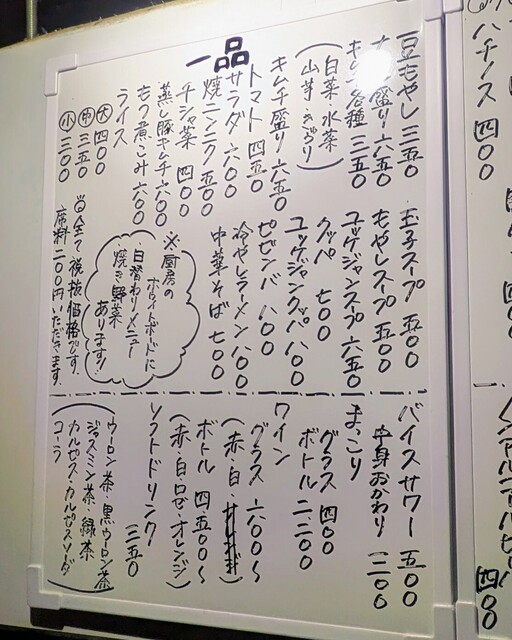 ハチノス 四〇〇
一品
豆もやし 三五〇
ナムル盛り 六五〇
キムチ各種 三五〇
(白菜・水菜
山芋・きゅうり)
キムチ盛り 六五〇
トマト 四五〇
サラダ 六〇〇
焼ニンニク 五〇〇
チシャ菜 四〇〇
蒸し豚キムチ 六〇〇
もつ煮こみ 六〇〇
ライス
大 四〇〇
中 三五〇
小 三〇〇
玉子スープ 五〇〇
もやしスープ 五〇〇
ユッケジャンスープ 六五〇
クッパ 七〇〇
ユッケジャンクッパ 八〇〇
ビビンバ 八〇〇
冷やしラーメン 八〇〇
中華そば 七〇〇
※厨房の
ホワイトボードに
日替わりメニュー
焼き野菜
あります!
◎全て税抜価格です。
席料二〇〇円いただきます。
バイスサワー 五〇〇
中身おかわり 三〇〇
まっこり
グラス 四〇〇
ボトル 二二〇〇
ワイン
グラス 六〇〇〜
(赤・白)
ボトル 四五〇〇〜
(赤・白・ロゼ・オレンジ)
ソフトドリンク
三五〇
(ウーロン茶・黒ウーロン茶
ジャスミン茶・緑茶
カルピス・カルピスソーダ
コーラ)